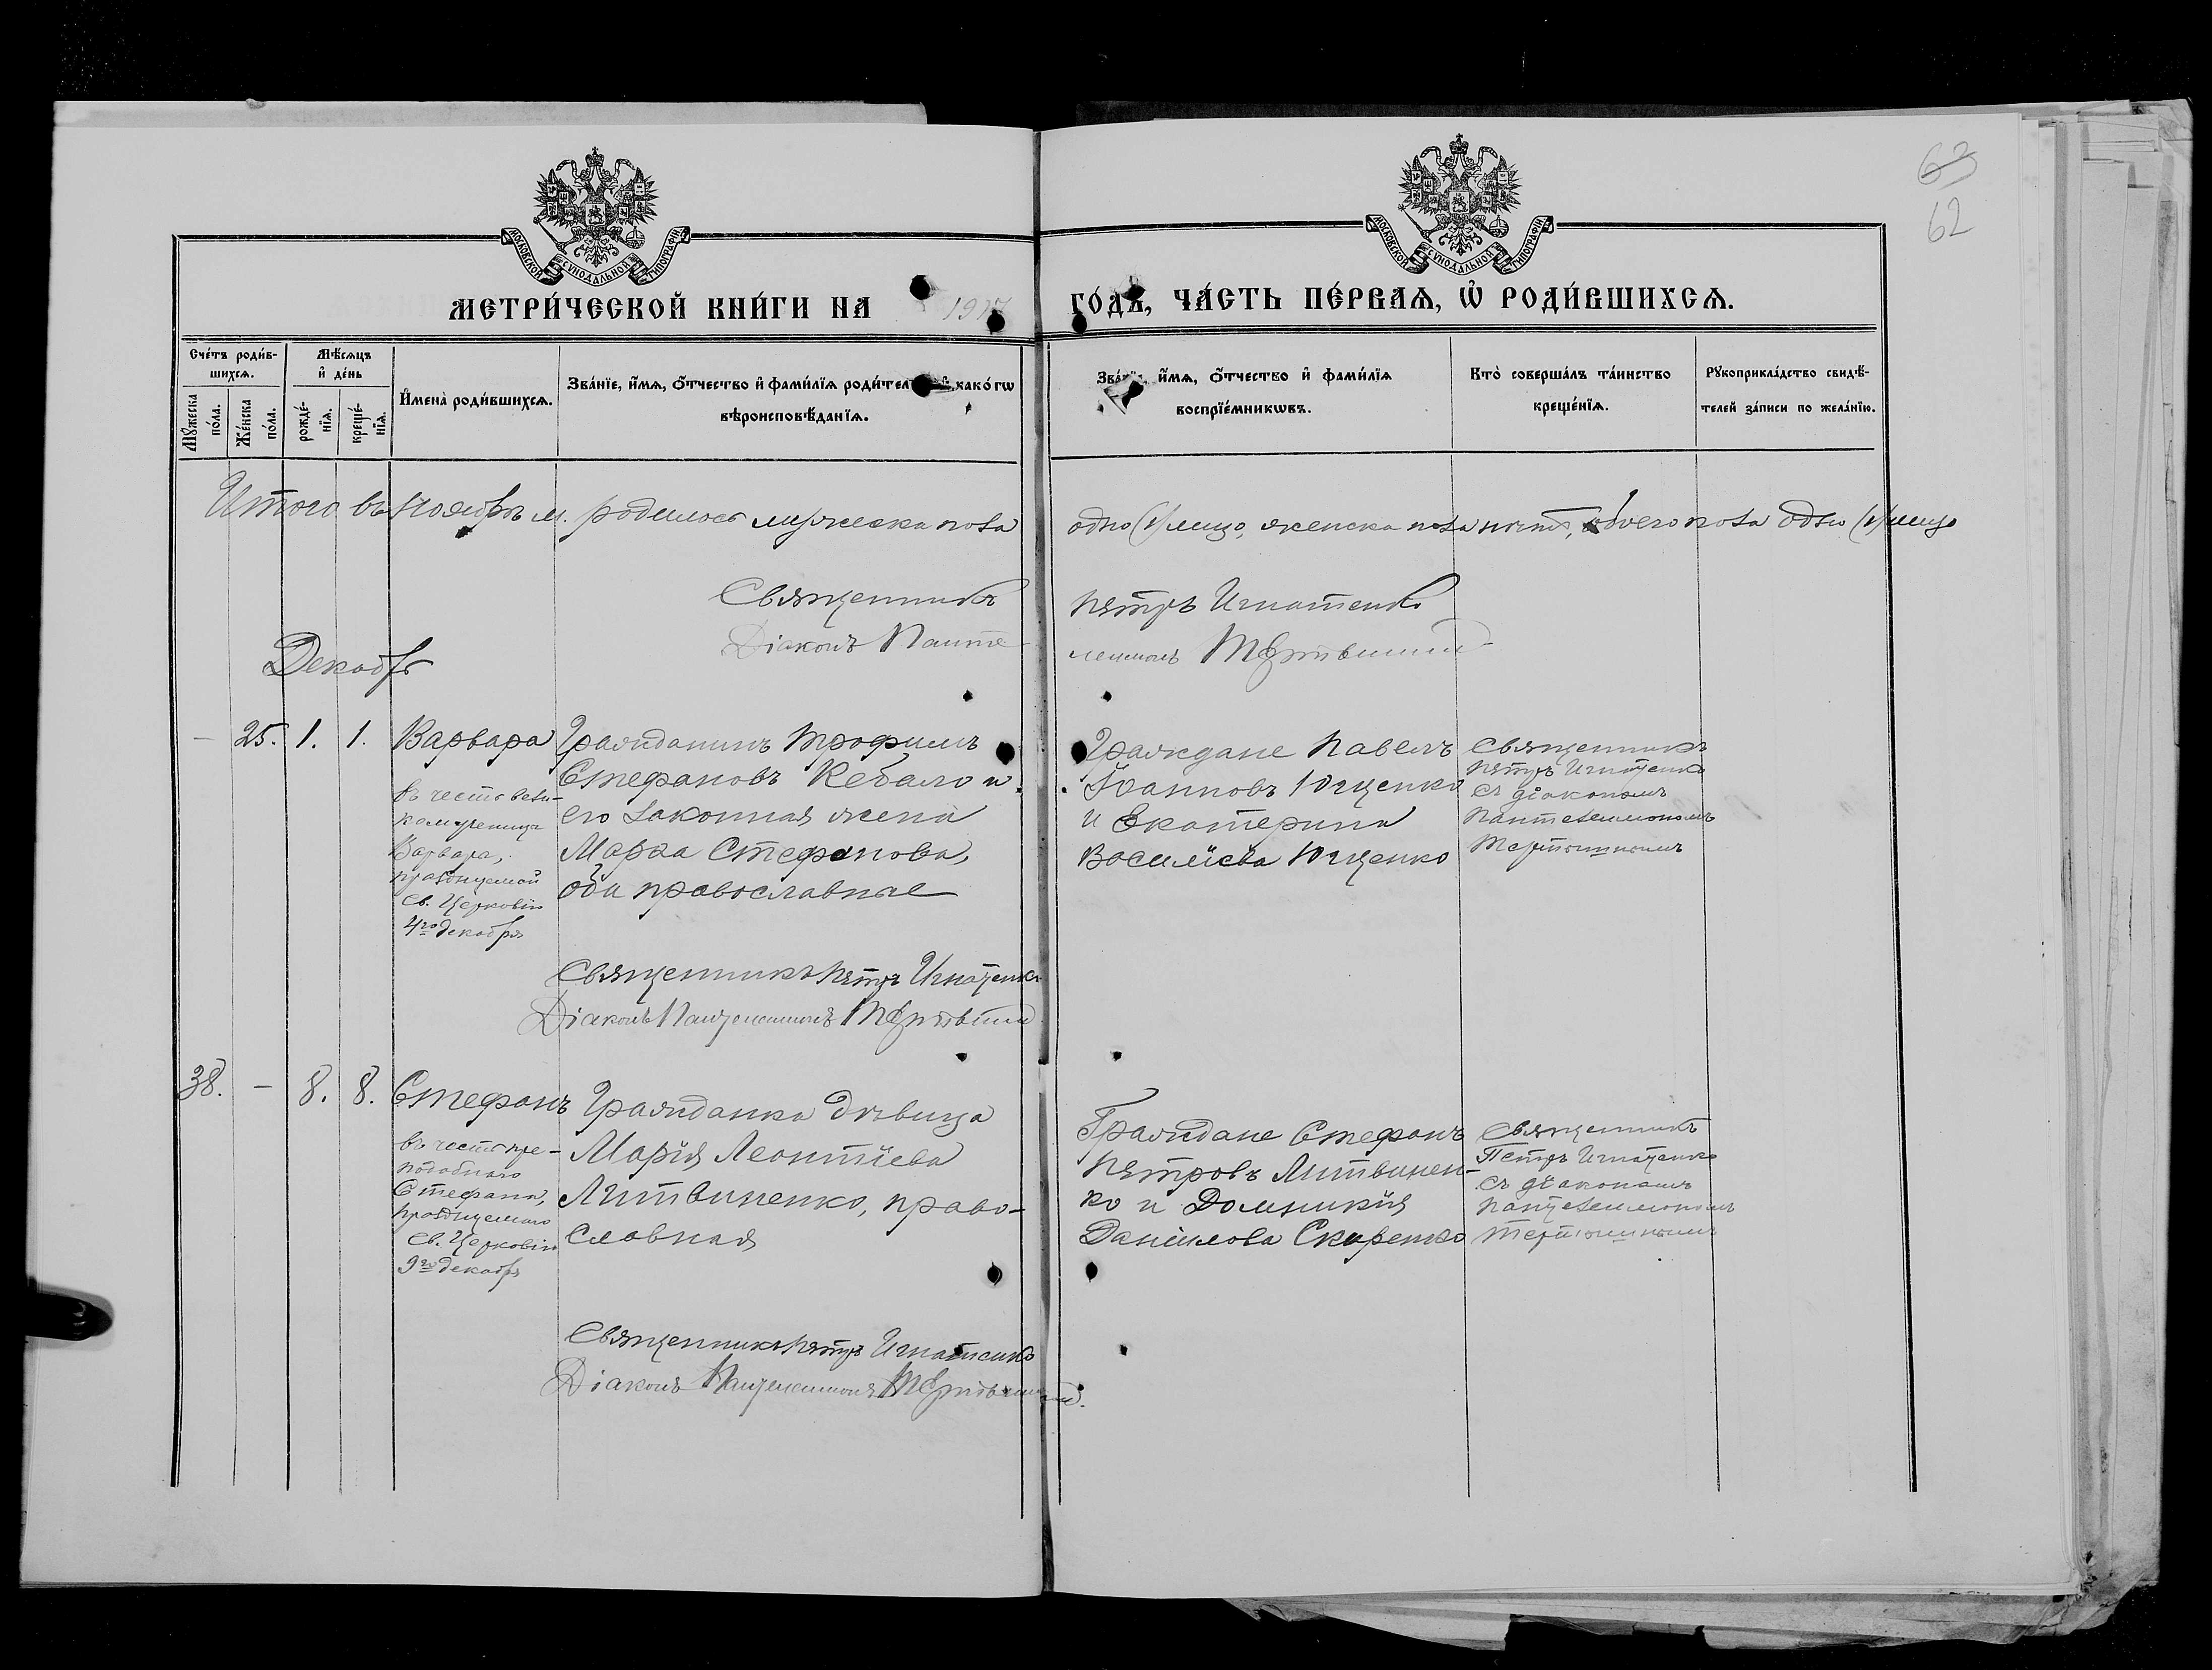 63
62
МОСКОВСКОЙ СѴНОДАЛЬНОЙ ТИПОГРАФІИ
МОСКОВСКОЙ СѴНОДАЛЬНОЙ ТИПОГРАФІИ
МЕТРИ́ЧЕСКОЙ КНИ́ГИ НА 1917 ГО́ДЪ, ЧА́СТЬ ПЕ́РВАЯ, Ѡ҆ РОДИ́ВШИХСЯ.
Сче́тъ роди́в-
шихся.
Му́жеска по́ла.
Же́нска по́ла.
Мѣ́сяцъ
и҆ де́нь
рожде́-
нїя.
креще́-
нїя.
И҆мена̀ роди́вшихся.
Зва́нїе, и҆́мя, ѻ҆́тчество и҆ фами́лїя роди́тел како́гѡ
вѣроисповѣ́данїя.
Зва́нїе, и҆́мя, ѻ҆́тчество и҆ фами́лїя
воспрїе́мникѡвъ.
Кто̀ соверша́лъ та́инство
креще́нїя.
Рꙋкоприкла́дство свидѣ́-
телей за́писи по жела́нїю.
Итого въ Ноябрѣ м. родилось мужеска пола одно (1) лицо, женска пола нѣтъ, обоего пола одно (1) лицо
Священникъ Петръ Игнатенко
Діаконъ Панте-
леимонъ
Декабрь
— 25. 1. 1. Варвара
въ честь вели-
комученицы
Варвары,
празднуемой
Св. Церковію
4го декабря
Гражданинъ Трофимъ
Стефановъ Кебало и
его законная жена
Марѳа Стефанова,
оба православные
Граждане Павелъ
Іоанновъ Ющенко
и Екатерина
Василіева Ющенко
Священникъ
Петръ Игнатенко
съ діакономъ
Пантелеимономъ
Священникъ Петръ Игнатенко
Діаконъ Пантелеимонъ
38. — 8. 8. Стефанъ
въ честь пре-
подобнаго
Стефана,
празднуемаго
Св. Церковію
9го декабря
Гражданка дѣвица
Марія Леонтіева
Литвиненко, право-
славная
Граждане Стефанъ
Петровъ Литвинен-
ко и Домникія
Даніилова Скиренко
Священникъ
Петръ Игнатенко
съ діакономъ
Пантелеимономъ
Священникъ Петръ Игнатенко
Діаконъ Пантелеимонъ